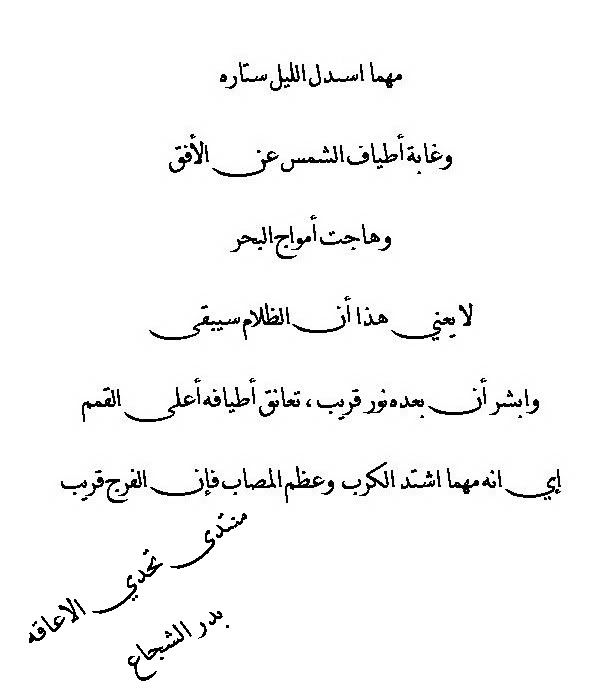 مهما اسدل الليل ستاره
وغابة أطياف الشمس عن الأفق
وهاجت أمواج البحر
لا يعني هذا أن الظلام سيبقى
وابشر أن بعده نور قريب ، تعانق أطيافه أعلى القمم
إي انه مهما اشتد الكرب وعظم المصاب فإن الفرج قريب
منتدى تحدي الاعاقه
بدر الشجاع